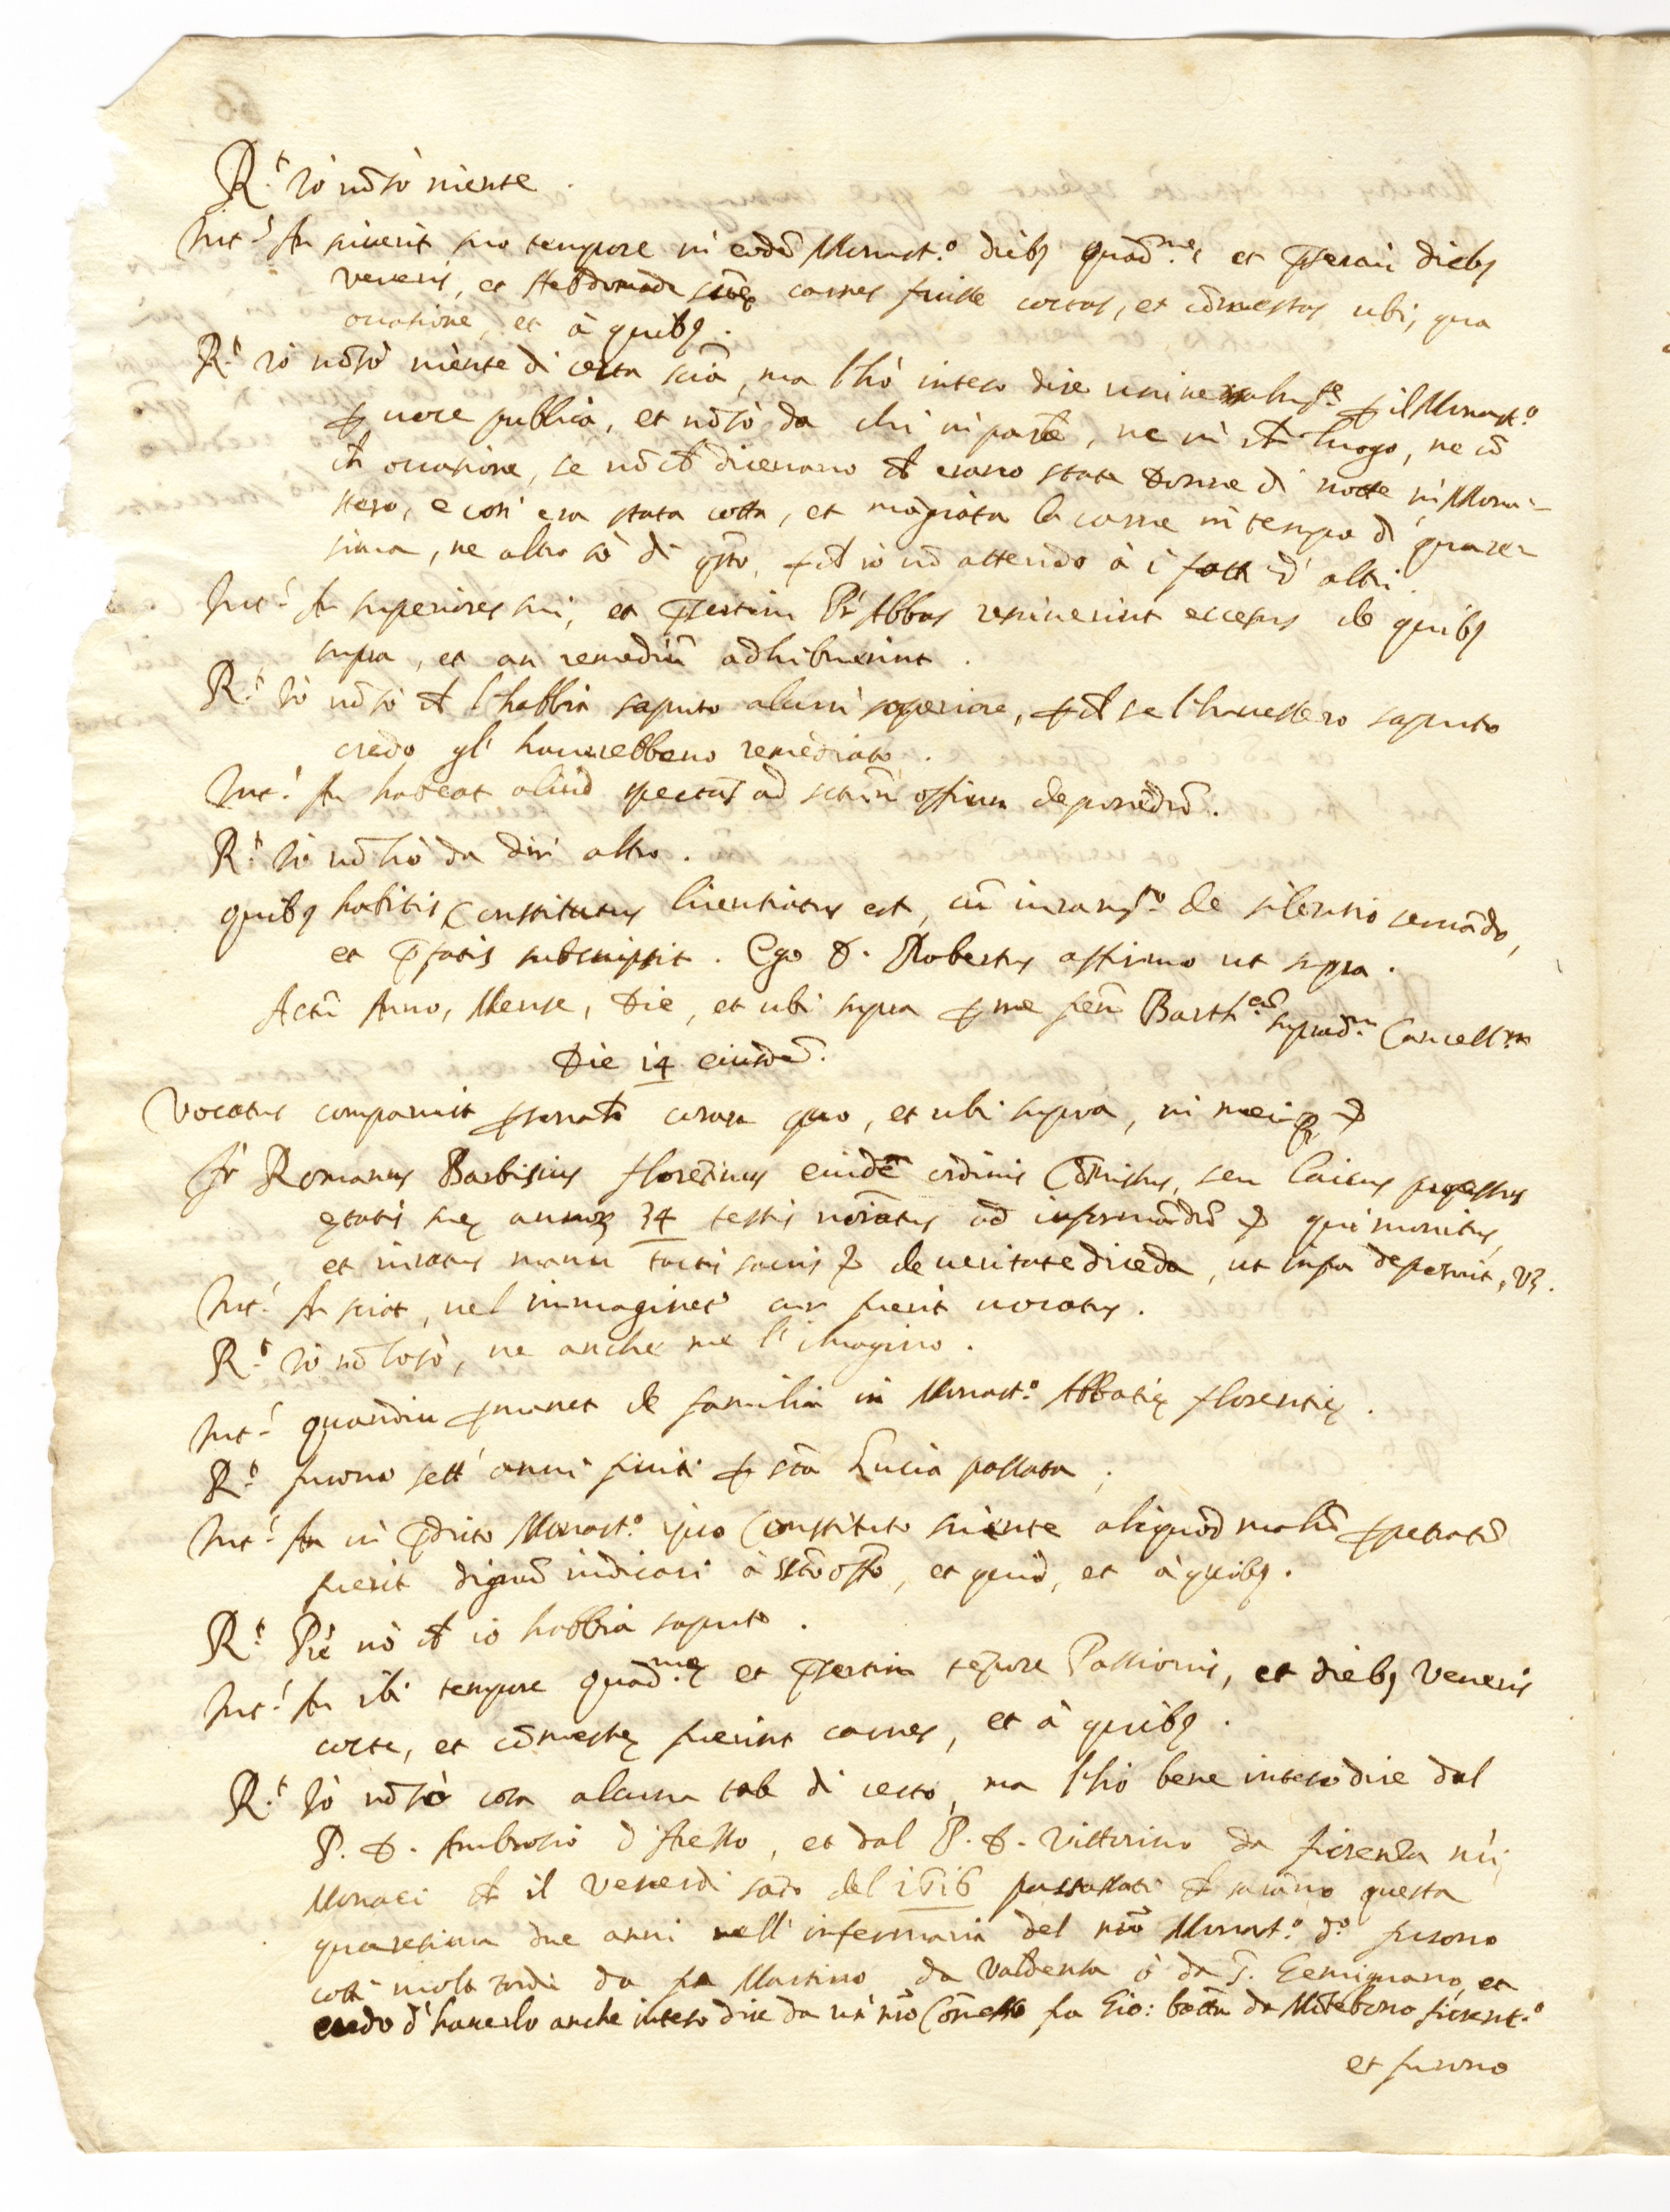 R.t Iò nõ sò niente.
Int.s An sciverit suo tempore in eodẽ Monast.o diebꝫ quad.mes et p̃sertim diebꝫ
veneris, et Hebdomade sctẹ carnes fuisse coctas, et cõmestas, ubi, qua
occasione, et à quibꝫ.
R.t iò nõ sò niente di certa sciã, ma l'hò inteso dire universalmte p il Monast.o
p voce publica, et nõ sò da chi in parte, ne in ch luogo, ne cõ
ch occasione, se nõ ch dicevano ch erano state Donne di notte in Mona-
stero, e così era stata cotta, et mãgiata la carne in tempo di quare-
sima, ne altro sò di qsto, pch iò nõ attendo à i fatti d'altri.
Int.s An superiores sui, et p̃sertim Pr Abbas resciverint excessus de quibꝫ
supra, et an remediũ adhibuerint.
R.t Iò nõ sò ch l'habbia saputo alcun' superiore, pch se l'havessero saputo
credo gl' haverebbeno remediato.
Int.s An habeat aliud spectãs ad sctũm offium deponẽdũ.
R.t Iò nõ hò da dir' altro.
quibꝫ habitis Constitutus licentiatus est, cũ iuram.to de silentio servãdo,
et p̃fatis subscripsit. Ego D. Robertus affirmo ut supra.
Actũ Anno, Mense, Die, et ubi supra p me frem Barth.eũ suprad.m Cancell.m
Die 14 eiusdẽ.
Vocatus comparuit psonalr coram quo, et ubi supra, in mei
Fr Romanus Barbisius florẽtinus eiusdẽ ordinis Cõmissus, seu laicus professus
ẹtatis suẹ annoꝝ 34 testis noĩatus ad informãdũ qui monitus,
et iuratus manu tactis sacris de veritate dicẽda, ut infra deposuit, vꝫ.
Int.s An sciat, vel immaginetr cur fuerit vocatus.
R.t Iò nõ lo sò, ne anche me l'imagino.
Int.s quandiu pmanet de familia in Monast.o Abbatiẹ florentiẹ.
R.t furono sett' anni finiti p sctã Lucia passata.
Int.s An in p̃dicto Monast.o ipso Constituto sciente aliquod malũ ppetratũ
fuerit dignũ indicari à Scto offo, et quid, et à quibꝫ.
R.t Prẽ nò ch io habbia saputo.
Int.s An ibi tempore quad.mẹ et p̃sertim tẽpore Passionis, et diebꝫ Veneris
cocte, et cõmestẹ fuerint carnes, et à quibꝫ.
R.t Iò nõ sò cosa alcuna tale di certo, ma l'hò bene inteso dire dal
P. D. Ambrosio d'Arezzo, et dal P. D. Vittorino da fiorenza nri
Monaci ch il Venerdi sãto del 1616 passassati ch sarãno questa
quaresima due anni nell'infermaria del nro Monast.o d.o furono
cotti molti tordi da fra Martino da Valdensa ò da S. Gemignano, et
credo d'haverlo anche inteso dire da un nro Cõmesso fra Gio: batta da Mõtebono fiorent.o
et furono